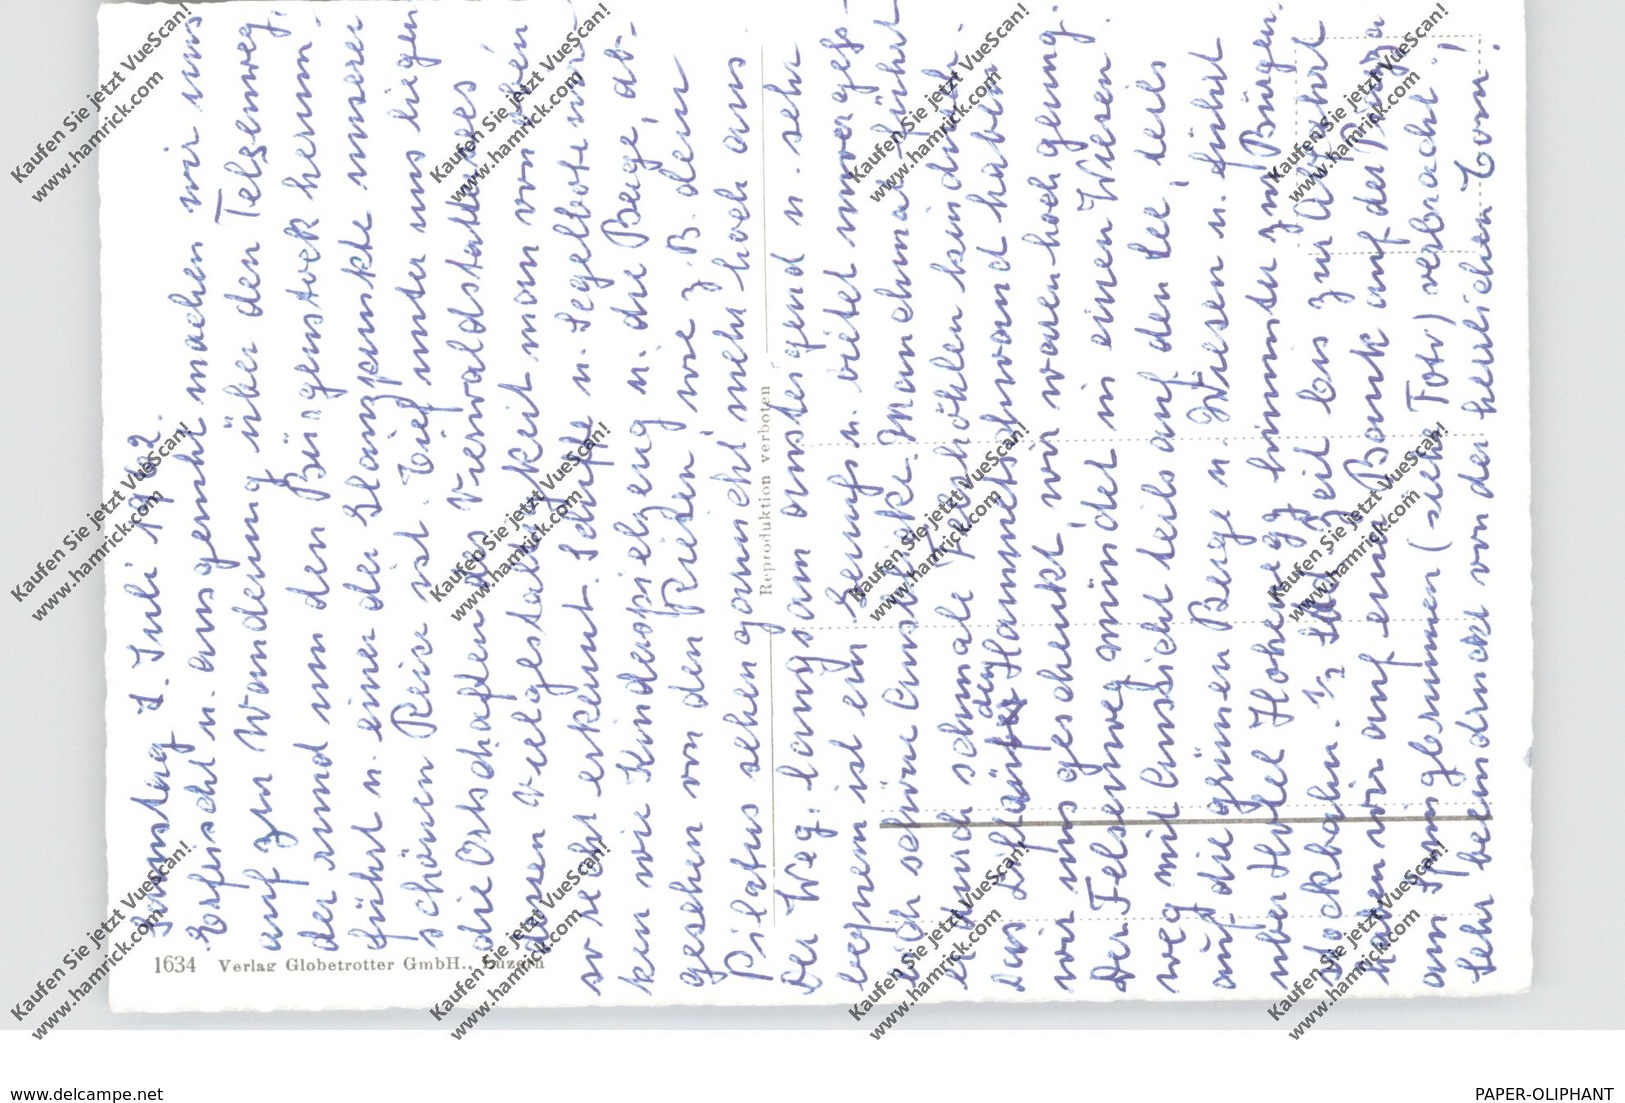 Samstag 7. Juli 1962.
Erfrischt u. ausgeruht machen wir uns
auf zur Wanderung über den Felsenweg,
der rund um den Bürgenstock herum
führt u. einer der Glanzpunkte unserer
schönen Reise ist. Tief unter uns liegen
die Ortschaften des Vierwaldstättersees,
deren Vielgestaltigkeit man von oben
so recht erkennt. Schiffe u. Segelboote wir-
ken wie Kinderspielzeug u. die Berge, ab-
gesehen von den Riesen, wie z. B. dem
Pilatus sehen gar nicht mehr hoch aus
Der Weg, langsam ansteigend u. sehr
bequem ist ein Genuss u. bietet unvergess-
lich schöne Ausblicke. Manchmal führt
er durch schmale Felshöhlen hindurch.
Das Lifthäuschen Hammetschwand haben
wir uns geschenkt, wir waren hoch genug.
Der Felsenweg mündet in einen Wiesen
weg mit Aussicht teils auf den See, teils
auf die grünen Berge u. Wiesen u. führt
über Hotel Honegg hinunter zur Bürgen-
stockbahn. 1/2 Std Zeit bis zur Abfahrt
haben wir auf einer Bank auf der Piazza
am Springbrunnen (siehe Foto) verbracht,
sehr beeindruckt von der herrlichen Tour!
1634 Verlag Globetrotter GmbH., Luzern
Reproduktion verboten
Kaufen Sie jetzt VueScan!
www.hamrick.com
oldthing.com
PAPER-OLIPHANT